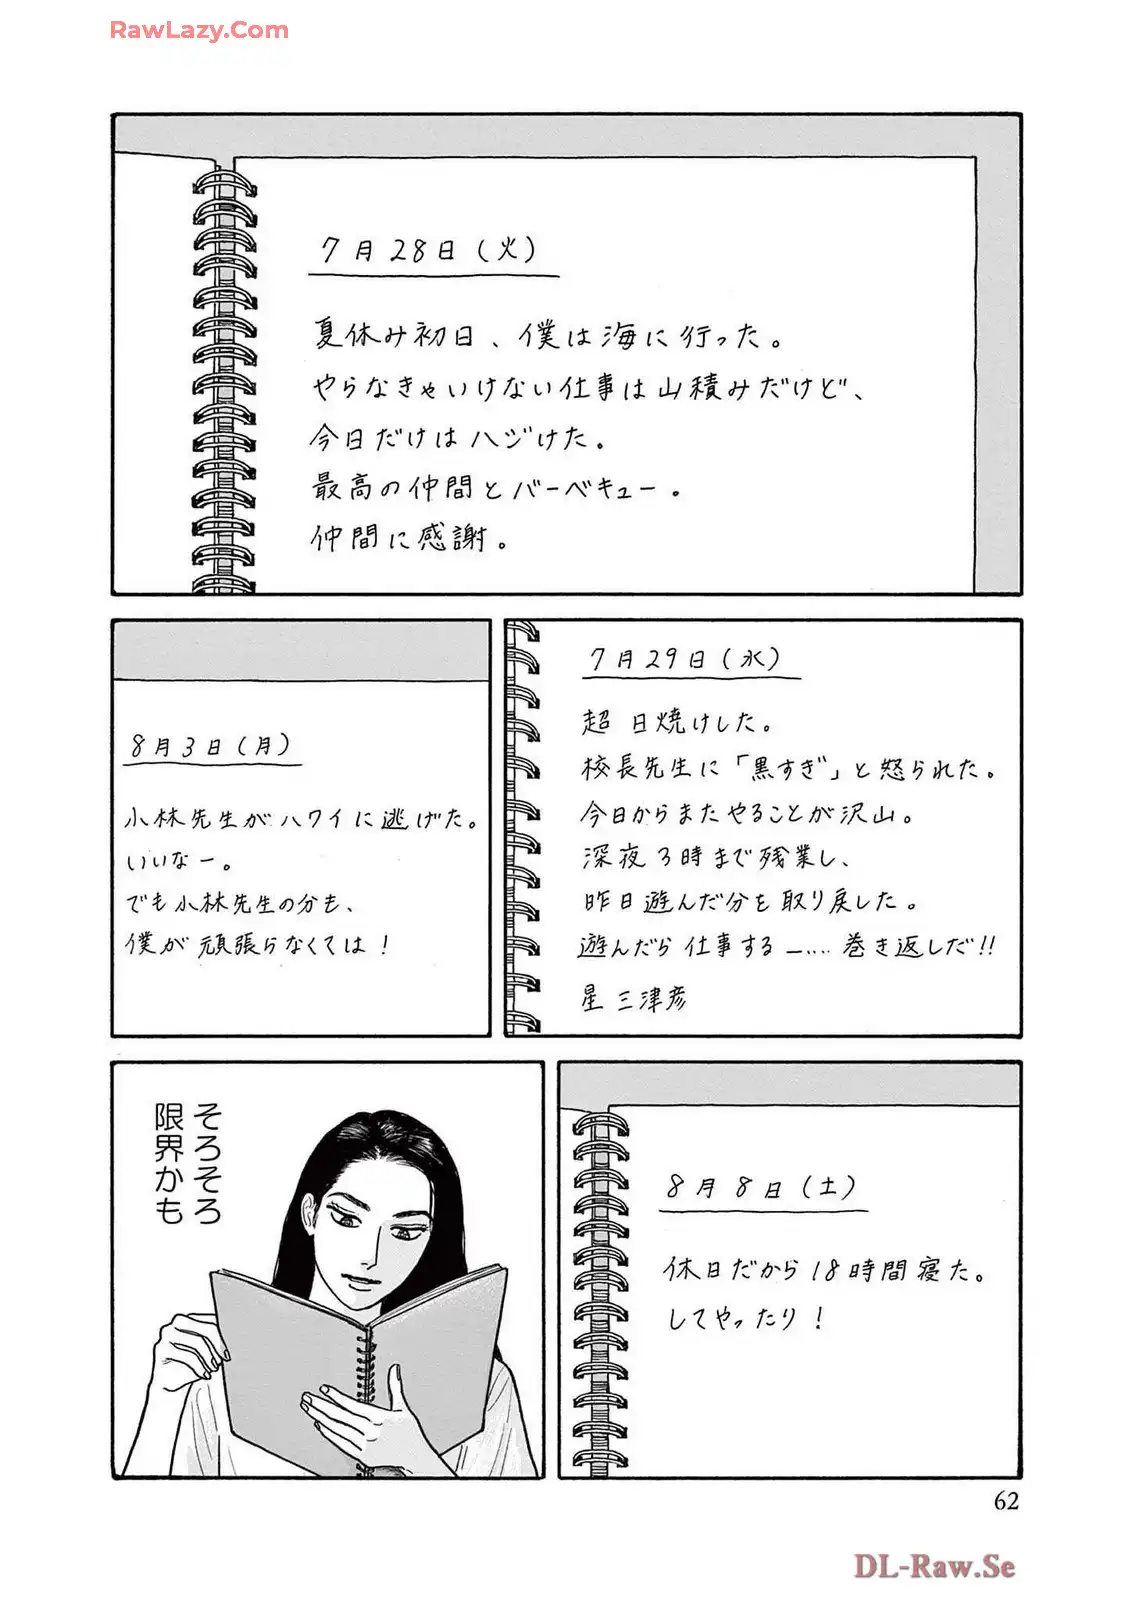 RawLazy.Com
7月28日(火)
夏休み初日、僕は海に行った。
やらなきゃいけない仕事は山積みだけど、
今日だけはハジけた。
最高の仲間とバーベキュー。
仲間に感謝。
7月29日(水)
超 日焼けした。
校長先生に「黒すぎ」と怒られた。
今日からまたやることが沢山。
深夜3時まで残業し、
昨日遊んだ分を取り戻した。
遊んだら仕事するー‥‥巻き返しだ!!
星 三津彦
8月3日(月)
小林先生がハワイに逃げた。
いいなー。
でも小林先生の分も、
僕が頑張らなくては!
8月8日(土)
休日だから18時間寝た。
してやったり!
そろそろ
限界かも
62
DL-Raw.Se